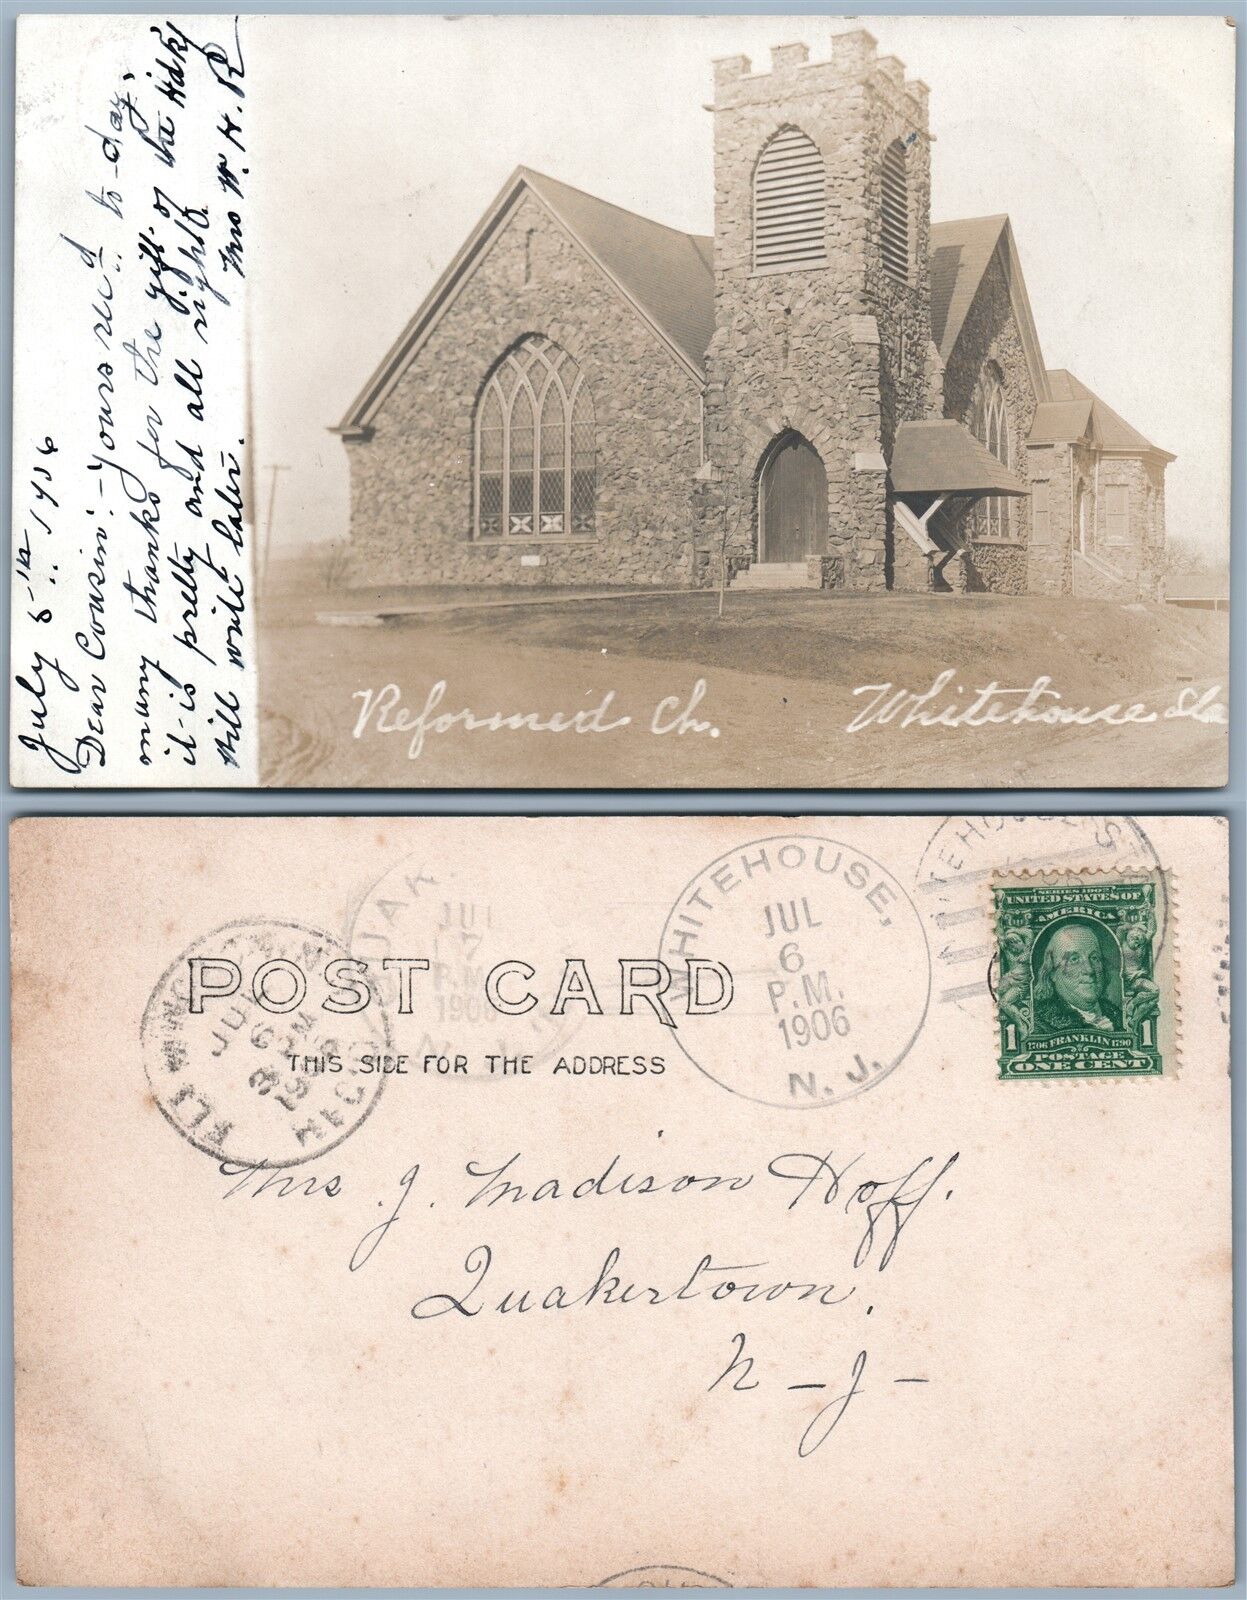 July 5th 1906
Dear Cousin:- Yours rec'd to-day,
many thanks for the gift of the hdkf
it is pretty and all right.
Will write later. Mrs W. H. R
Reformed Ch. Whitehouse Sta
WHITEHOUSE,
JUL
6
P.M.
1906
N. J.
JUL
7
P.M.
1906
N. J.
SERIES 1902
UNITED STATES OF
AMERICA
1 1
1706 FRANKLIN 1790
POSTAGE
ONE CENT
POST CARD
THIS SIDE FOR THE ADDRESS
Mrs J. Madison Hoff.
Quakertown,
N-J-